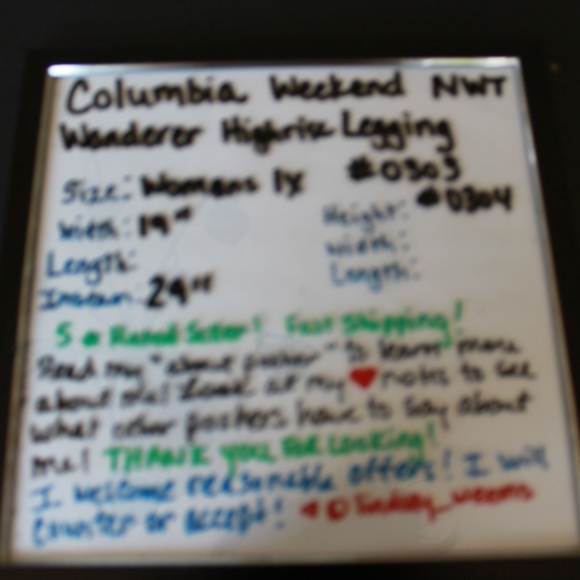 Columbia Weekend NWT
Wanderer Highrise Legging
Size: Womens 1X #0303
#0304
Width: 19"
Height:
Width:
Length:
Length:
Inseam: 29"
5 ★ Rated Seller! Fast Shipping!
Read my "about posher" to learn more
about me! Look at my ♥ notes to see
what other poshers have to say about
me! THANK YOU FOR Looking!
I welcome reasonable offers! I will
counter or accept! @lindsay_weems